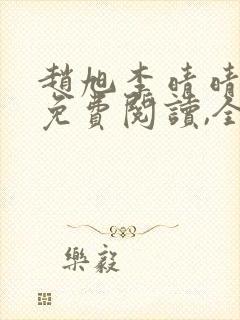 趙旭李晴晴
免費閱讀,全
樂毅